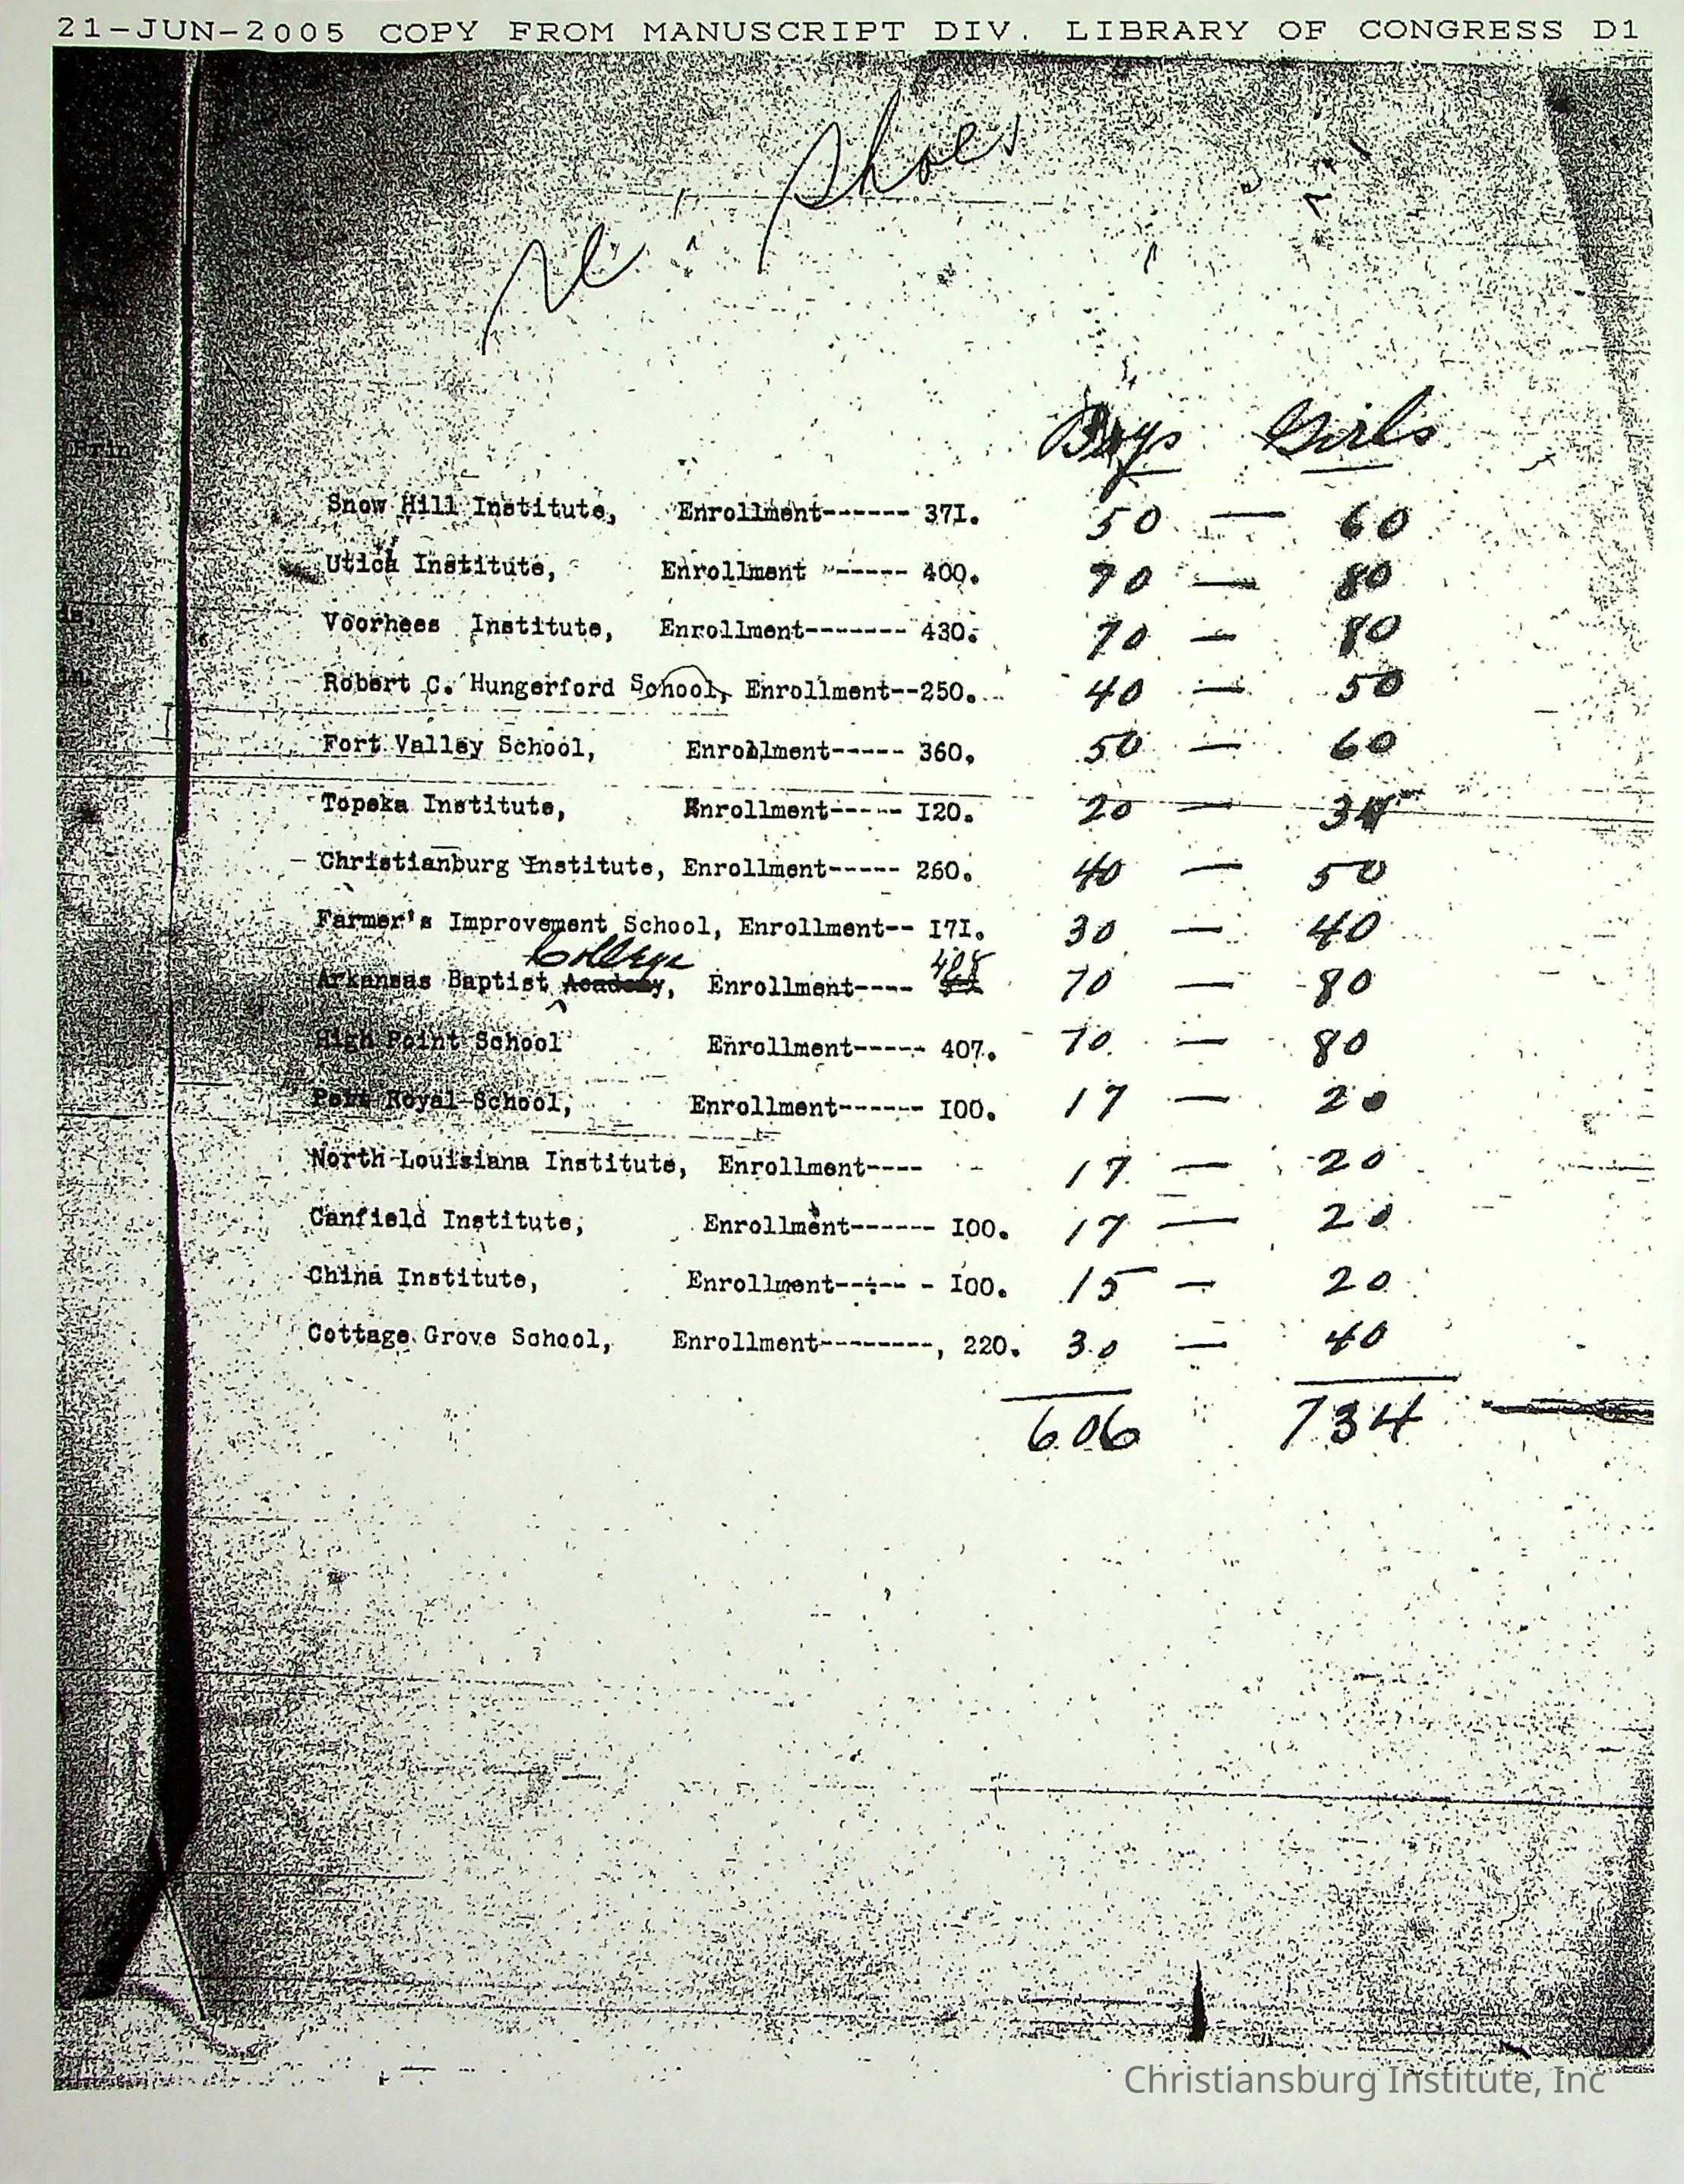 21-JUN-2005 COPY FROM MANUSCRIPT DIV. LIBRARY OF CONGRESS D1
re Shoes
Boys Girls
Snow Hill Institute, Enrollment------ 37I. 50 — 60
Utica Institute, Enrollment ------ 400. 70 — 80
Voorhees Institute, Enrollment------- 430. 70 — 80
Robert C. Hungerford School, Enrollment--250. 40 — 50
Fort Valley School, Enrollment----- 360. 50 — 60
Topeka Institute, Enrollment----- I20. 20 — 34
Christianburg Institute, Enrollment----- 260. 40 — 50
Farmer's Improvement School, Enrollment-- I7I. 30 — 40
College 408
Arkansas Baptist Academy, Enrollment---- 70 — 80
High Point School Enrollment----- 407. 70 — 80
Port Royal School, Enrollment------ I00. 17 — 20
North Louisiana Institute, Enrollment---- 17 — 20
Canfield Institute, Enrollment------ I00. 17 — 20
China Institute, Enrollment----- - I00. 15 — 20
Cottage Grove School, Enrollment--------, 220. 30 — 40
606 734
Prin
Christiansburg Institute, Inc